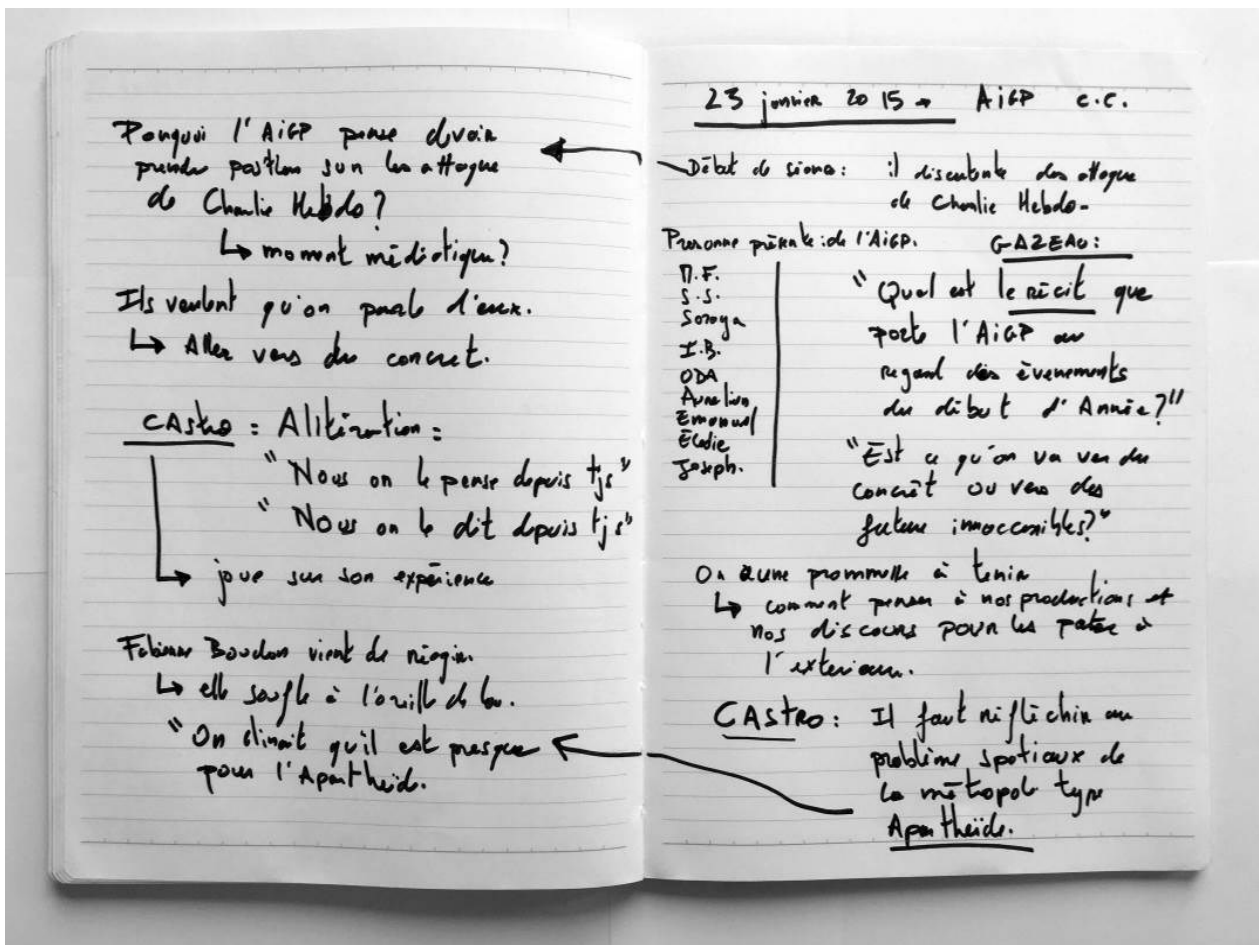 Pourquoi l'AiGP pense devoir
prendre position sur les attaque
de Charlie Hebdo?
↳ moment médiatique?
Ils veulent qu'on parle d'eux.
↳ Aller vers du concret.
CAStro : Alitération :
"Nous on le pense depuis tjs"
"Nous on le dit depuis tjs"
↳ joue sur son expérience
Fabienne Boudon vient de réagir.
↳ elle soufle à l'oreille de
"On dirait qu'il est presque
pour l'Apartheid.
23 janvier 2015 → AiGP c.c.
Début de séance : il discutent des attaque
de Charlie Hebdo-
Personne présente : de l'AiGP.
M.F.
S.S.
Soraya
I.B.
ODA
Aurelien
Emanuel
Élodie
Joseph.
GAZEAU :
"Quel est le récit que
porte l'AiGP au
regard des évenements
du début d'Année?"
"Est ce qu'on va vers du
concrèt ou vers des
future innaccessibles?"
On a une à tenir
↳ comment penser à nos productions et
nos discours pour les à
l'exterieur.
CAStRO : Il faut réfléchir au
problème spatiaux de
la métropole type
Apartheïde.